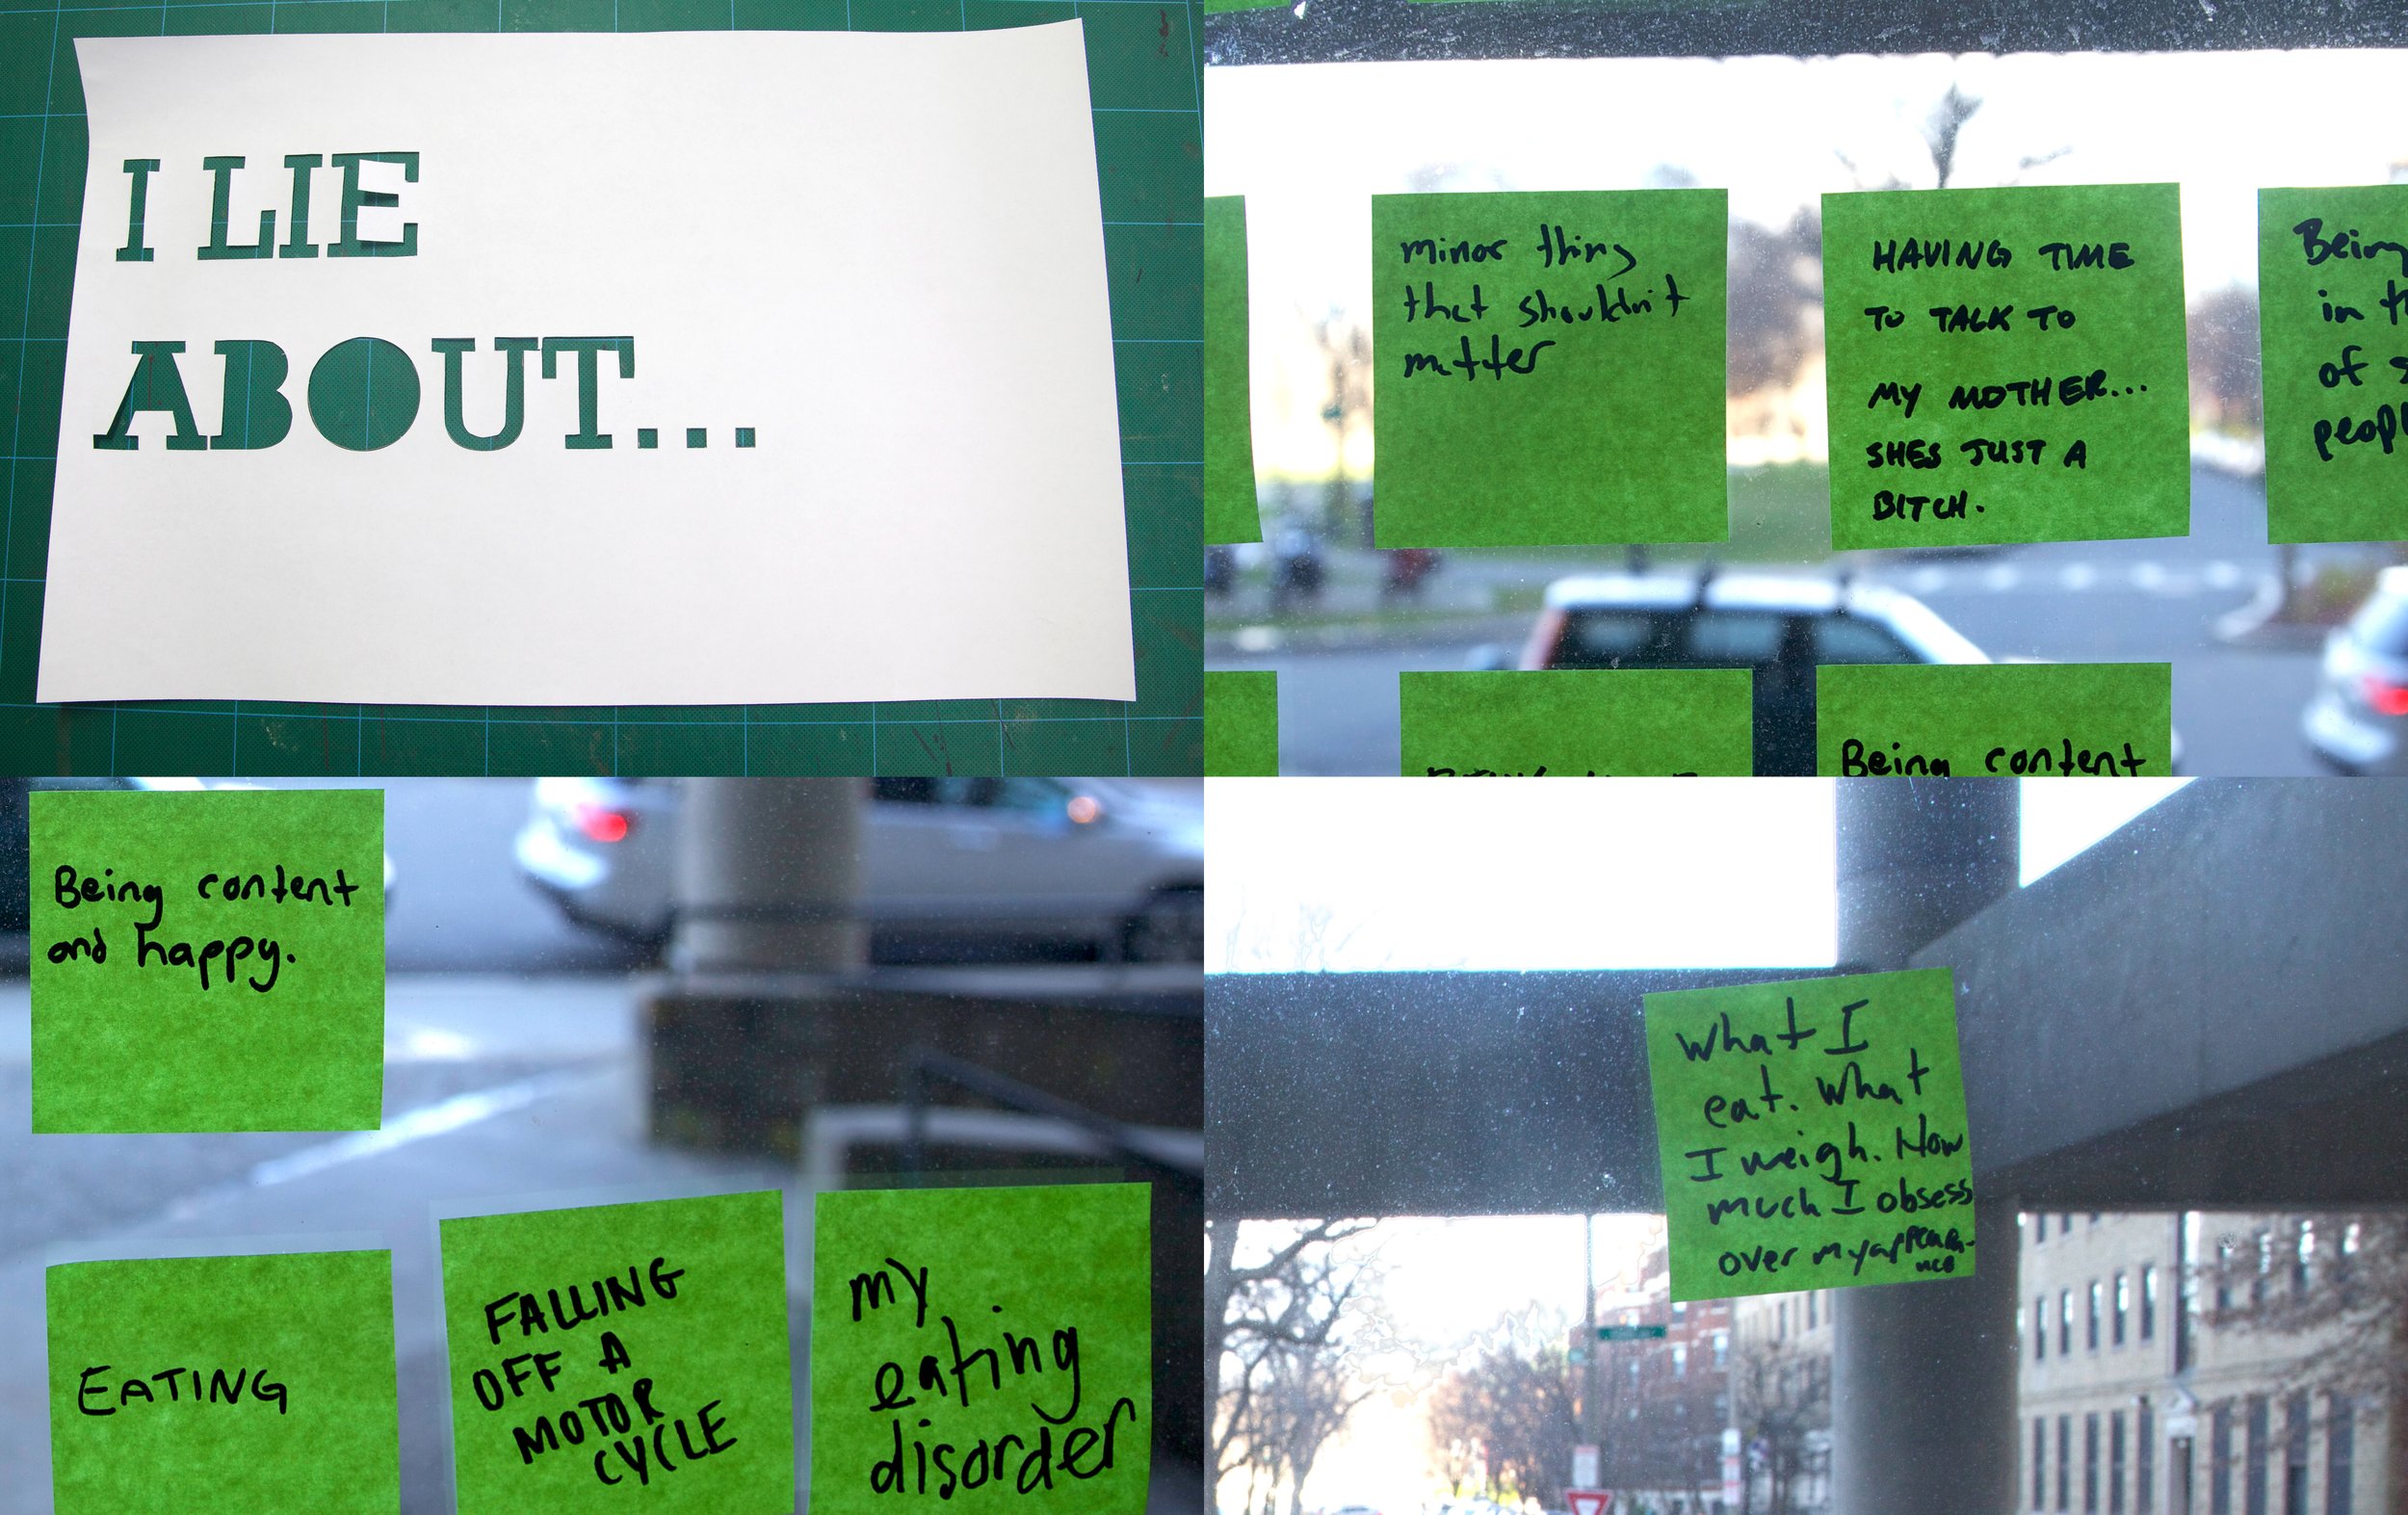 I LIE
ABOUT...
minor thing
that shouldn't
matter
HAVING TIME
TO TALK TO
MY MOTHER...
SHES JUST A
BITCH.
Being
in
of
Being content
Being content
and happy.
EATING
FALLING
OFF A
MOTOR
CYCLE
my
eating
disorder
What I
eat. What
I weigh. How
much I obsess
over my appear-
nce